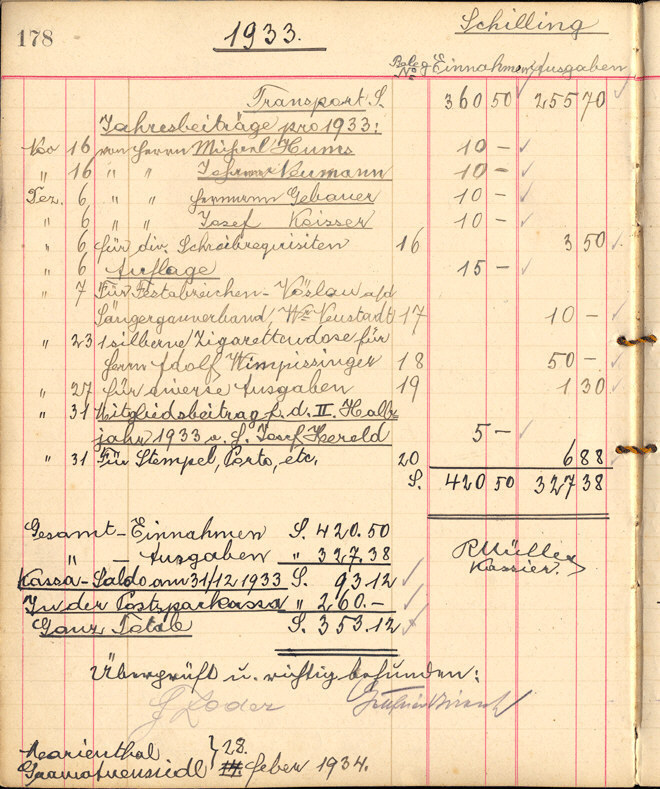 178 1933. Schilling
Beleg No Einnahmen Ausgaben
Transport S. 360 50 255 70
Jahresbeiträge pro 1933:
No 16 von Herrn Michael Hums 10 –
" 16 " " Neumann 10 –
Dez. 6 " " Hermann Gebauer 10 –
" 6 " " Josef Kaisser 10 –
" 6 für div. Schreibrequisiten 16 3 50
" 6 Auflage 15 –
" 7 Für Festabzeichen – Vöslau a/d
Sängergauverband Wr Neustadt 17 10 –
" 23 1 silberne Zigarettendose für
Herrn Adolf Wimpissinger 18 50 –
" 27 für diverse Ausgaben 19 1 30
" 31 Mitgliedsbeitrag f. d. II. Halb-
jahr 1933 v. H. Josef Herold 5 –
" 31 Für Stempel, Porto, etc. 20 6 88
S. 420 50 327 38
Gesamt – Einnahmen S. 420.50
" – Ausgaben " 327.38
Kassa – Saldo am 31/12 1933 S. 93.12
In der Postsparkassa " 260.–
Ganz Totale S. 353.12
R Müller
Kassier.
Übergrüft u. richtig befunden:
J Zoder
Marienthal
Gramatneusiedl } 28. Feber 1934.